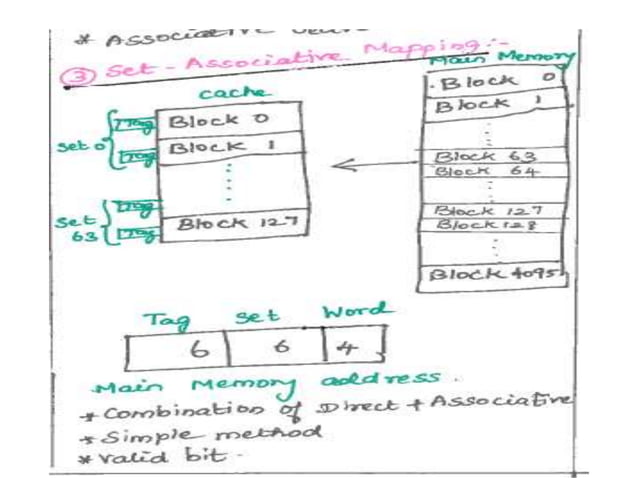 * Associative
③ Set - Associative Mapping :-
cache
Main Memory
Set 0
Tag
Block 0
Tag
Block 1
Set 63
Tag
Tag
Block 127
Block 0
Block 1
Block 63
Block 64
Block 127
Block 128
Block 4095
Tag Set Word
6 6 4
Main Memory address.
* Combination of Direct + Associative
* Simple method
* Valid bit.